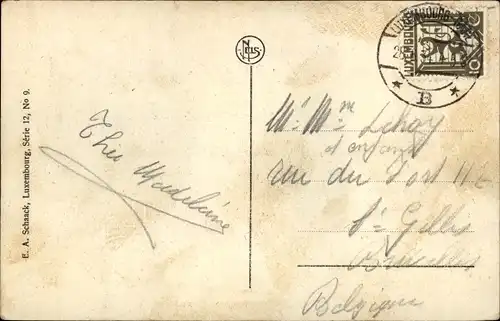 E. A. Schaack, Luxembourg, Série 12, No 9.
NELS
LUXEMBOURG
LUXEMBOURG
10
B
Madeleine
Mr Mme Lehoy
et enfant
rue du Fort
St Gilles
Bruxelles
Belgique